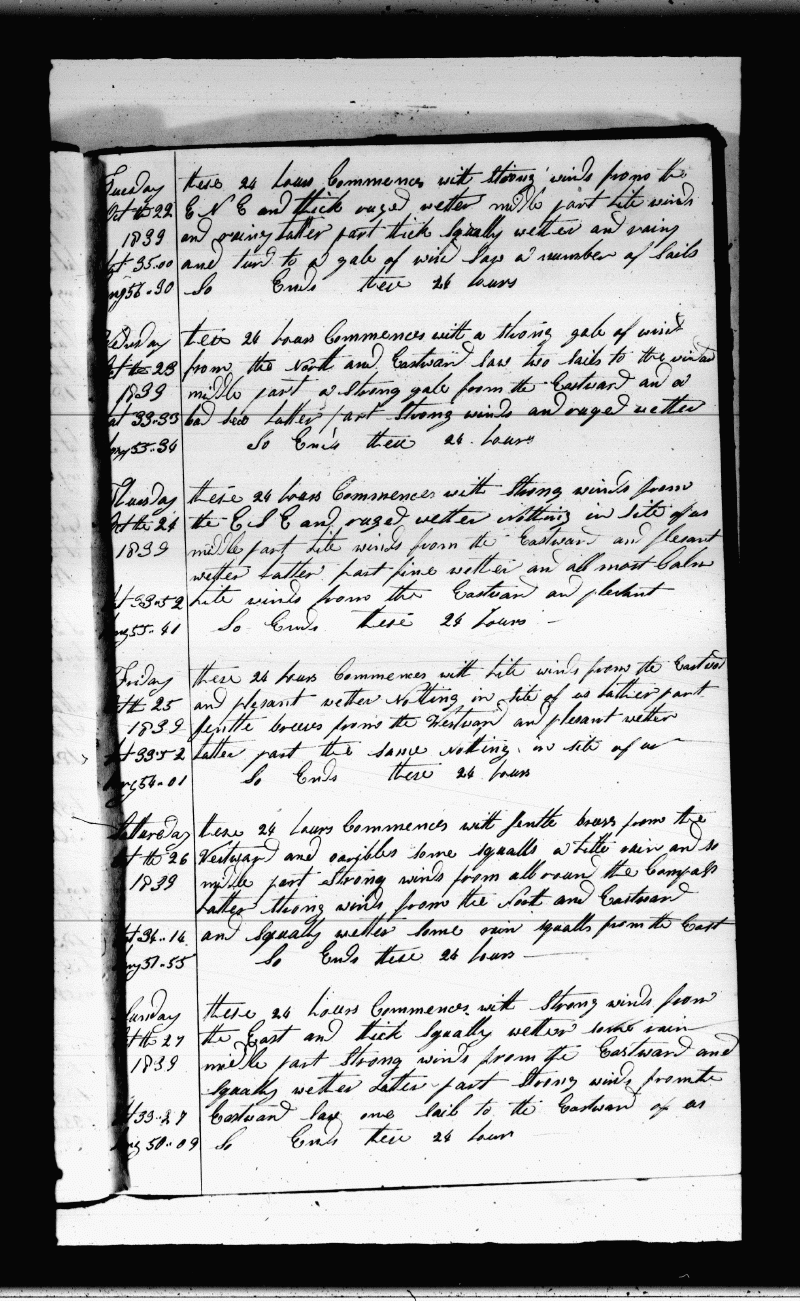 Tuesday these 24 hours Commences with Strong winds from the
Oct th 22 E N E and thick ruged wetter midle part Lite winds
1839 and rainy Latter part thick Squally wetter and rainy
Lat 35.00 and turd to a gale of wind Saw a number of Sails
Long 56.30 So Ends these 24 hours
Wedursday these 24 hours Commences with a strong gale of wind
Oct th 23 from the North and Eastward Saw two Sails to the windard
1839 midle part a Strong gale from the Eastward and a
Lat 33.33 bad Sea Latter part Strong winds and ruged wetter
Long 55.34 So Ends these 24 hours
Thursday these 24 hours Commences with Strong winds from
Oct the 24 the E S E and ruged wetter Notting in Site of us
1839 midle part Lite winds from the Eastward and plesant
wetter Latter part fine wetter and all most Calm
Lat 33.52 Lite winds from the Eastward an plesant
Long 55.41 So Ends these 24 hours
Friday these 24 hours Commences with Lite winds from the Eastward
Oct th 25 and plesant wetter Notting in Site of us Latter part
1839 Jentle breeses from the Westward and plesant wetter
Lat 33.52 Latter part the same Notting in site of us
Long 54.01 So Ends these 24 hours
Satturday these 24 hours Commences with Jentle breses from the
Oct th 26 Westward and varibles some squalls a little rain and so
1839 midle part Strong winds from all round the Compass
Latter Strong winds from the Nort and Eastward
Lat 34.14 and Squally wetter Some rain squalls from the East
Long 51.55 So Ends these 24 hours
Sunday these 24 hours Commences with Strong winds from
Oct th 27 the East and thick Squally wetter some rain
1839 midle part Strong winds from the Eastward and
Squally wetter Latter part Strong winds from the
Lat 33.27 Eastward Saw one Sail to the Eastward of us
Long 50.09 So Ends these 24 hours